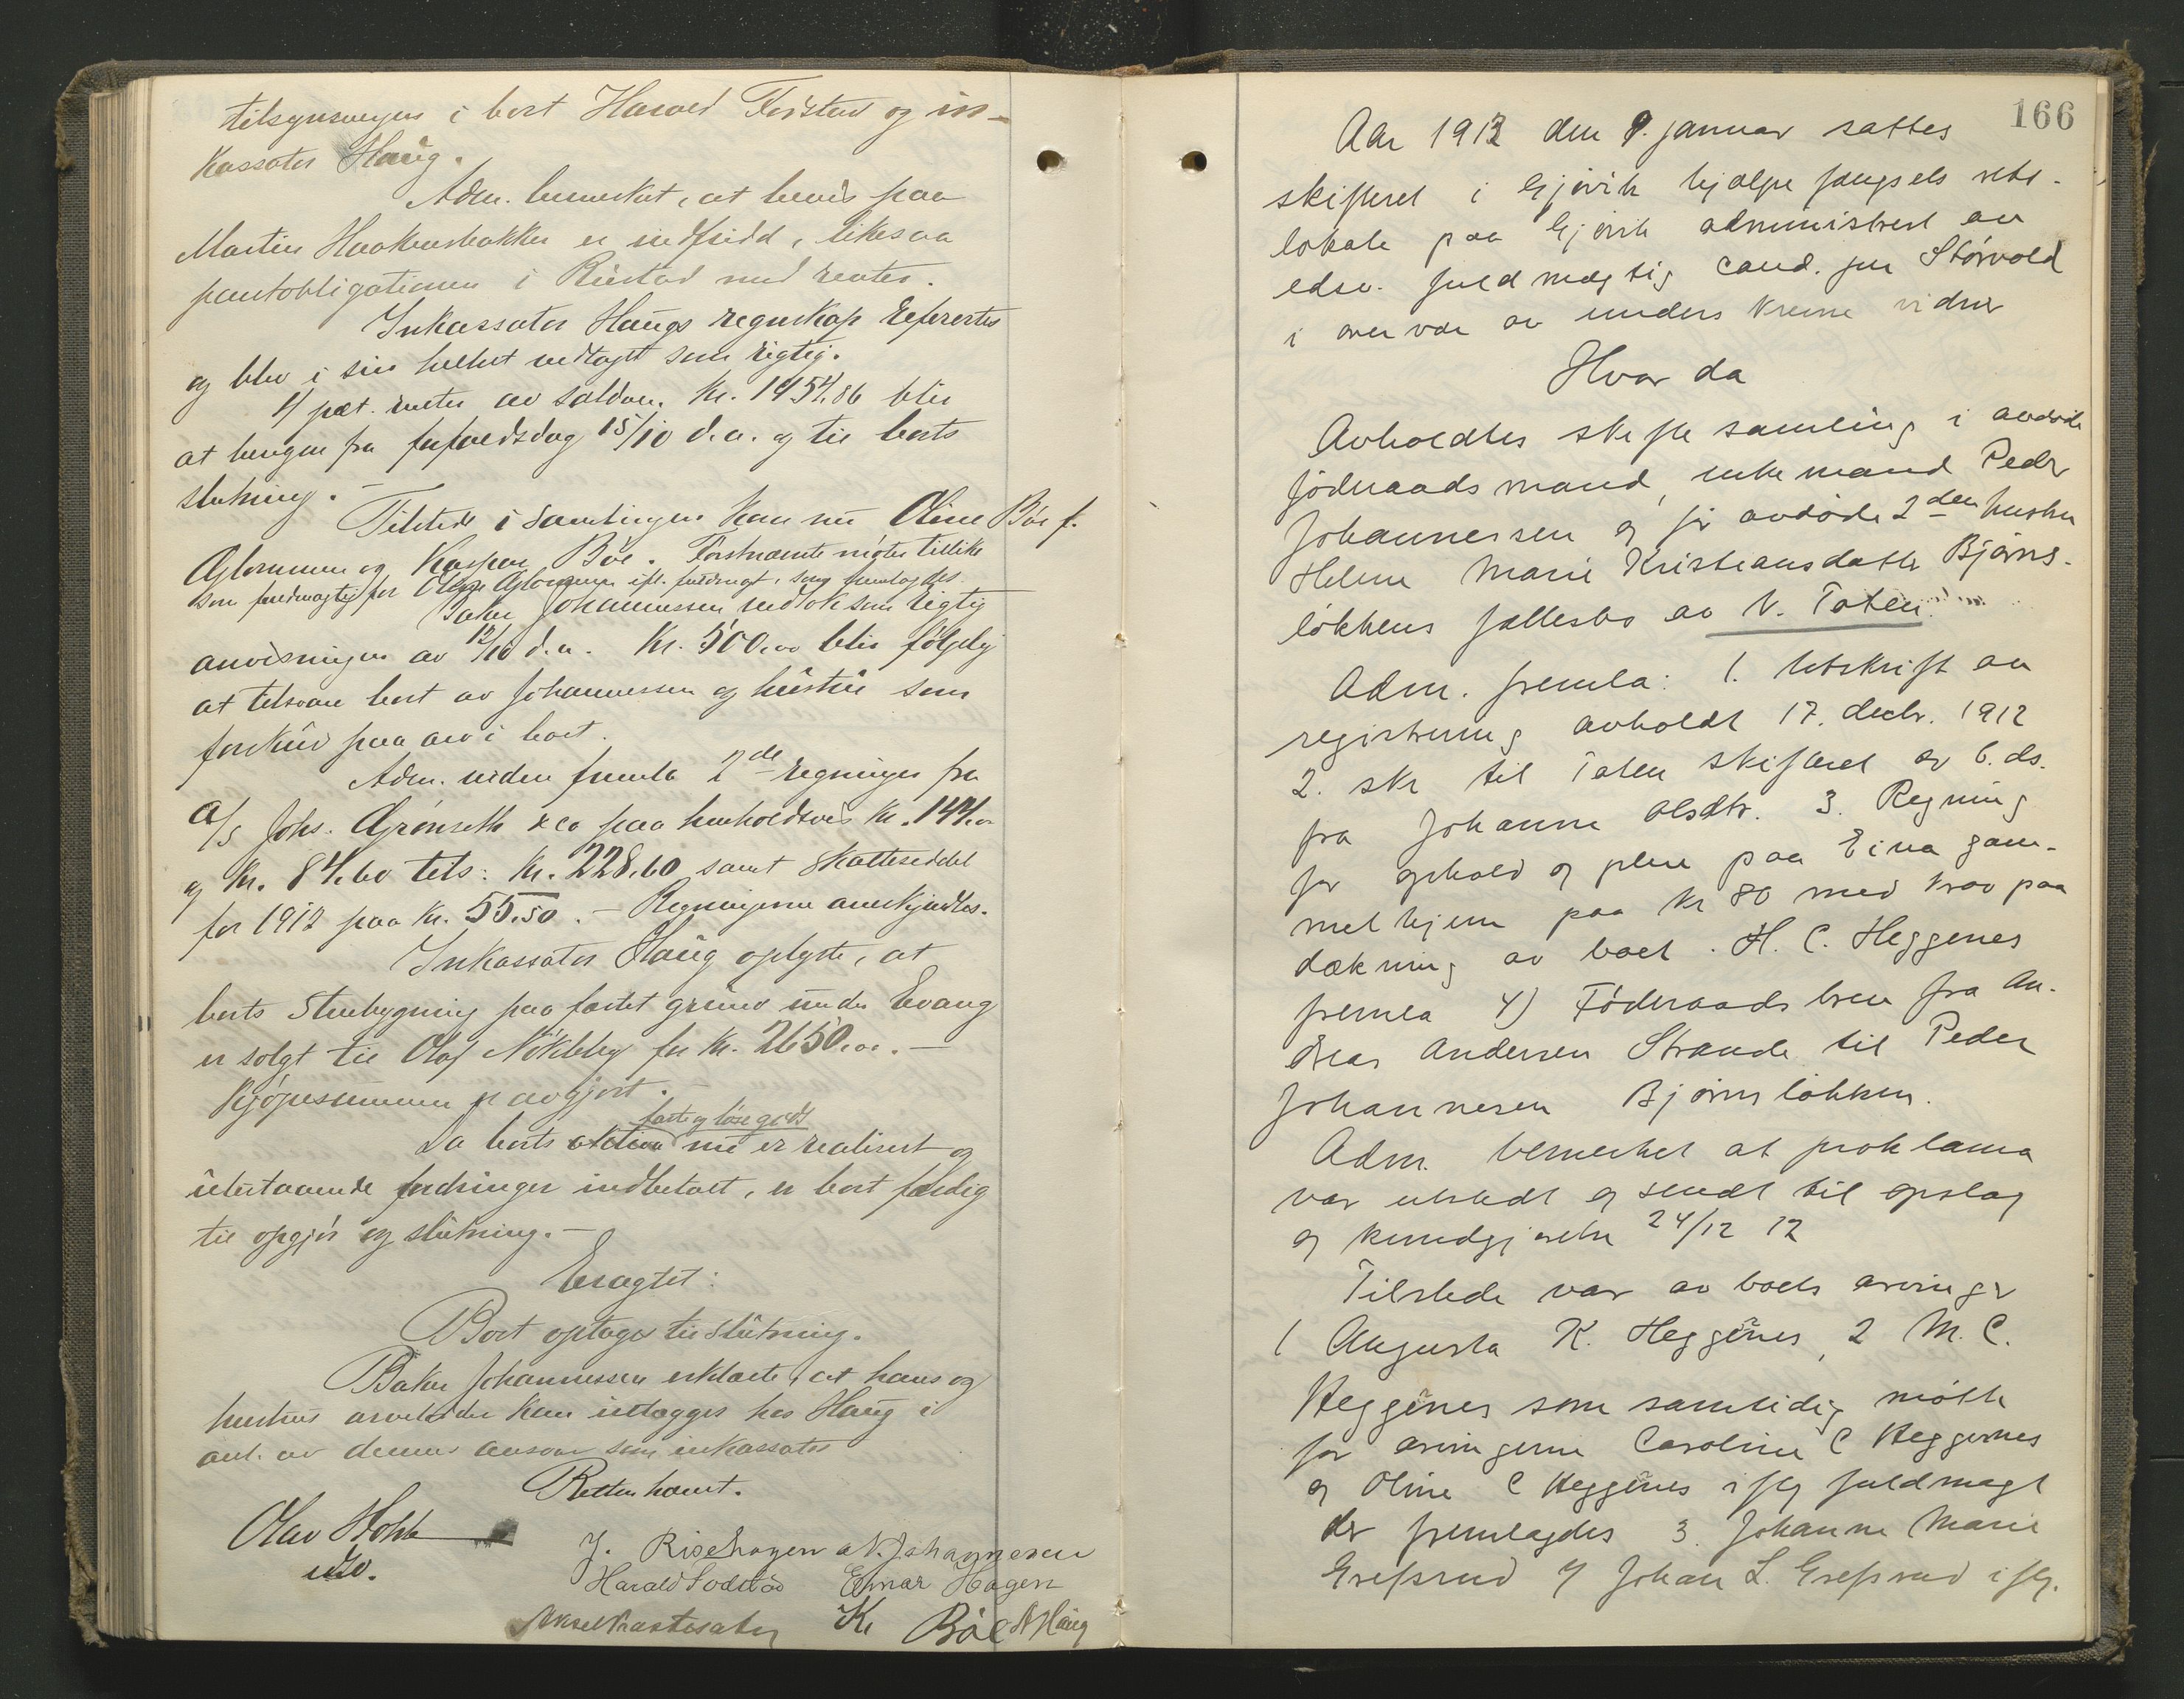 tilsynsmegen i boet Harald Fodstad og in-
kassator Haug.
Adm. bemerket, at bevis paa
Martin Haakenstbakken er indfridd, likesaa
pantobligationen i Rustad med renter.
Inkassator Haugs regnskap refereertes
og blev i sin helhet vedtaget som rigtig.
4 pct. renter av saldoen kr. 1454.86 blir
at beregne fra forfaldsdag 15/10 d.a. og til boets
slutning. –
Tilstede i samlingen kom nu Oline Böe f.
Glommen og Kaspar Böe. Förstnævnte möter tillike
som fuldmægtig for Glommen ifl. fuldmagt, som fremlagdes.
Baker Johannessen vedtok som rigtig
anvisningen av 12/10 d.a. Kr. 500.00 blir fölgelig
at tilsvare boet av Johannessen og hustru som
forskud paa arv i boet.
Adm. videre fremla 2de regninger fra
A/S Johs. Grönseth & co paa henholdsvis kr. 144.00
og kr. 84.60 tils: kr. 228.60 samt skatteseddel
for 1912 paa kr. 55.50. – Regningerne anerkjendtes.
Inkassator Haug oplyste, at
boets stuebygning paa festet grund under Evang
er solgt til Olaf Nökleby for kr. 2650.00. –
Kjöpesummen er avgjort. –
faste og löse gods
Da boets aktiva nu er realisert og
utestaaende fordringer indbetalt, er boet færdig
til opgjör og slutning. –
Eragtet:
Boet optages til slutning.
Baker Johannessen erklærte, at hans og
hustrus arvelodder kan utlægges hos Haug i
anl. av dennes ansvar som inkassator
Retten hævet.
Olav Stokk
edsv.
J. Risehagen a N. Johannesen
Harald Fodstad Einar Hagen
K. Böe A Haug
166
Aar 1913 den 9. januar sattes
skifteret i Gjövik hjælpefængsels rets-
lokale paa Gjövik administrert av
edsv. fuldmægtig cand. jur Störvold
i overvær av underskrevne vidner
Hvor da
Avholdtes skiftesamling i avdöde
föderaadsmand, enkemand Peder
Johannessen og för avdöde 2den hustru
Helene Marie Kristiansdatter Björns-
lökkens fællesbo av V. Toten
Adm. fremla: 1. Utskrift av
registrering avholdt 17. decbr. 1912
2. skr til Toten skifteret av 6. ds.
fra Johanne Olsdtr. 3. Regning
for ophold og pleie paa Eina gam-
melhjem paa kr 80 med krav paa
dækning av boet. H. C. Heggenes
fremla 4) Föderaadsbrev fra An-
dreas Andersen Strande til Peder
Johannesen Björnslökken.
Adm. bemerket at proklama
var utstedt og sendt til opslag
og kundgjörelse 24/12 12
Tilstede var av boets arvinger
1 Augusta K. Heggenes, 2 M. C.
Heggenes som samtidig mötte
for arvingerne Caroline C Heggenes
og Oline C Heggenes iflg fuldmagt
der fremlagdes 3. Johanne Marie
Grefsrud v/ Johan L. Grefsrud iflg.